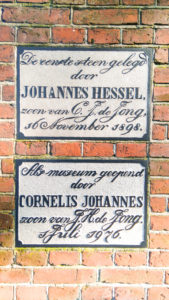 De eerste steen gelegd
door
JOHANNES HESSEL,
zoon van C.J. de Jong,
16 November 1898.
Als museum geopend
door
CORNELIS JOHANNES
zoon van J.H. de Jong.
April 1976.